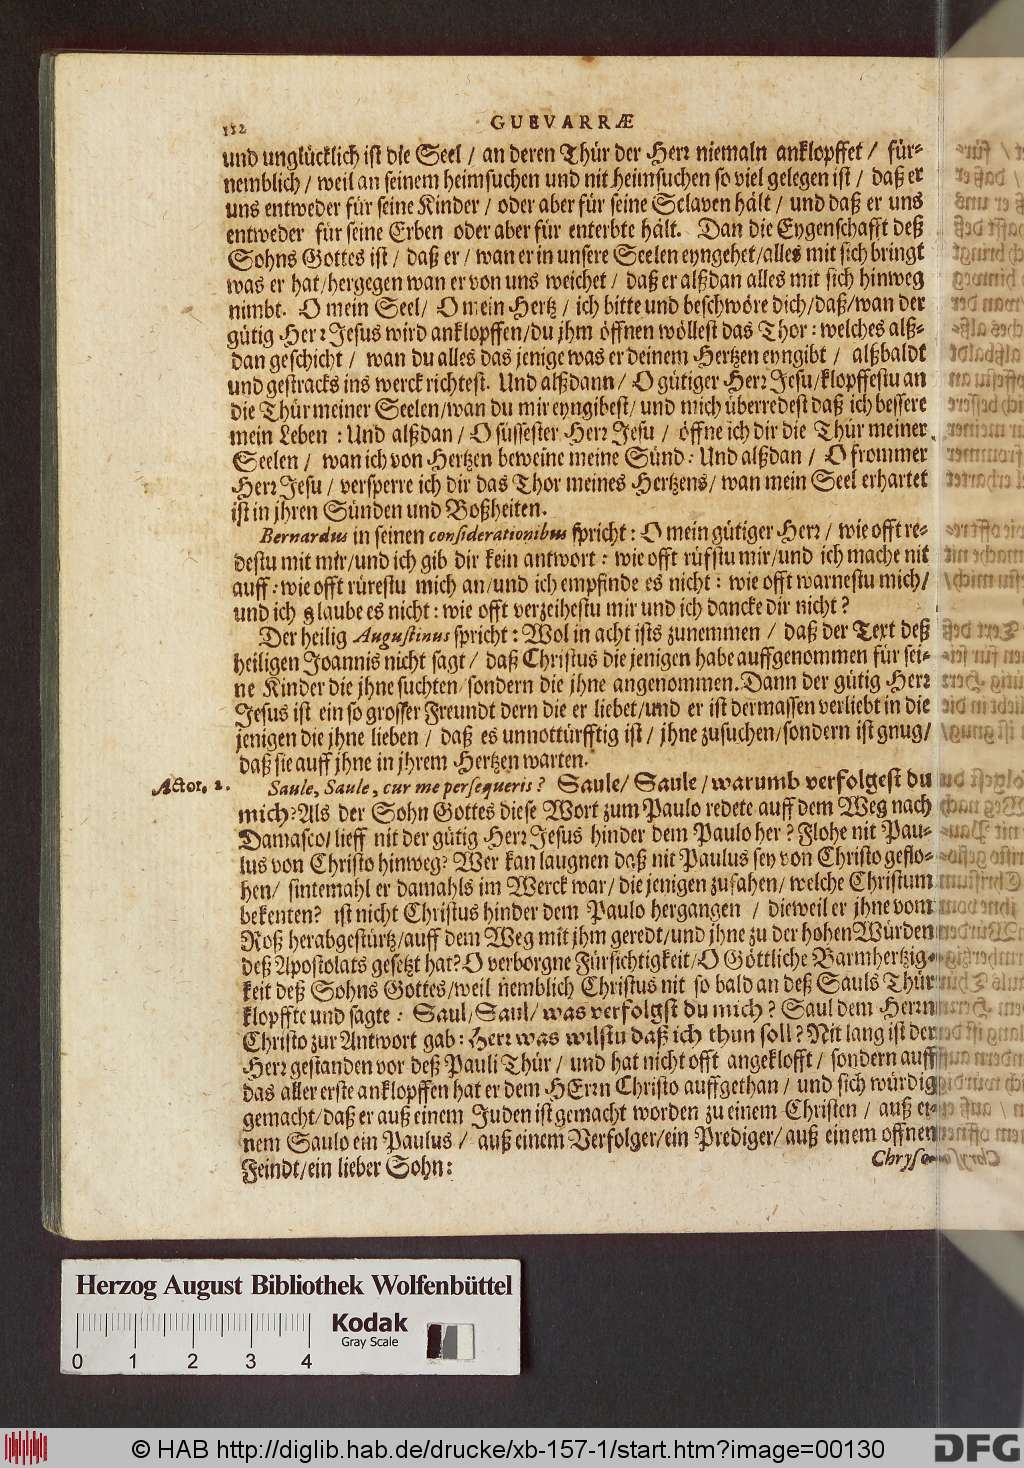 112
GUEVARRÆ
und unglücklich ist die Seel / an deren Thür der Herr niemaln anklopffet / für-
nemblich / weil an seinem heimsuchen und nit heimsuchen so viel gelegen ist / daß er
uns entweder für seine Kinder / oder aber für seine Sclaven hält / und daß er uns
entweder für seine Erben oder aber für enterbte hält. Dan die Eygenschafft deß
Sohns Gottes ist / daß er / wan er in unsere Seelen eyngehet/alles mit sich bringt
was er hat/hergegen wan er von uns weichet / daß er alßdan alles mit sich hinweg
nimbt. O mein Seel/ O mein Hertz / ich bitte und beschwöre dich/daß/wan der
gütig Herr Jesus wird anklopffen/du jhm öffnen wöllest das Thor: welches alß-
dan geschicht / wan du alles das jenige was er deinem Hertzen eyngibt / alßbaldt
und gestracks ins werck richtest. Und alßdann/ O gütiger Herr Jesu/klopffestu an
die Thür meiner Seelen/wan du mir eyngibest/und mich überredest daß ich bessere
mein Leben : Und alßdan / O süssester Herr Jesu / öffne ich dir die Thür meiner
Seelen / wan ich von Hertzen beweine meine Sünd: Und alßdan / O frommer
Herr Jesu / versperre ich dir das Thor meines Hertzens/ wan mein Seel erhartet
ist in jhren Sünden und Boßheiten.
Bernardus in seinen considerationibus spricht: O mein gütiger Herr / wie offt re-
destu mit mir/und ich gib dir kein antwort: wie offt rüfstu mir/und ich mache nit
auff: wie offt rürestu mich an/und ich empfinde es nicht: wie offt warnestu mich/
und ich glaube es nicht: wie offt verzeihestu mir und ich dancke dir nicht?
Der heilig Augustinus spricht: Wol in acht ists zunemmen / daß der Text deß
heiligen Joannis nicht sagt / daß Christus die jenigen habe auffgenommen für sei-
ne Kinder die jhne suchten/sondern die jhne angenommen. Dann der gütig Herr
Jesus ist ein so grosser Freundt dern die er liebet/und er ist dermassen verliebt in die
jenigen die jhne lieben / daß es unnottürfftig ist / jhne zusuchen/sondern ist gnug/
daß sie auff jhne in jhrem Hertzen warten.
Actor. 2. Saule, Saule, cur me persequeris? Saule/ Saule / warumb verfolgest du
mich? Als der Sohn Gottes diese Wort zum Paulo redete auff dem Weg nach
Damasco/lieff nit der gütig Herr Jesus hinder dem Paulo her? Flohe nit Pau-
lus von Christo hinweg? Wer kan laugnen daß nit Paulus sey von Christo geflo-
hen/ sintemahl er damahls im Werck war / die jenigen zufahen/ welche Christum
bekenten? ist nicht Christus hinder dem Paulo hergangen / dieweil er jhne vom
Roß herabgestürtz/auff dem Weg mit jhm geredt/und jhne zu der hohen Würden
deß Apostolats gesetzt hat? O verborgne Fürsichtigkeit/O Göttliche Barmhertzig-
keit deß Sohns Gottes/weil nemblich Christus nit so bald an deß Sauls Thür
klopffte und sagte : Saul/ Saul/ was verfolgst du mich? Saul dem Herrn
Christo zur Antwort gab: Herr was wilstu daß ich thun soll? Nit lang ist der
Herr gestanden vor deß Pauli Thür / und hat nicht offt angeklofft / sondern auff
das aller erste anklopffen hat er dem HErrn Christo auffgethan / und sich würdig
gemacht/daß er auß einem Juden ist gemacht worden zu einem Christen / auß ei-
nem Saulo ein Paulus / auß einem Verfolger/ein Prediger/ auß einem offnen
Feindt/ein lieber Sohn:
Chryso-
Herzog August Bibliothek Wolfenbüttel
Kodak
Gray Scale
0 1 2 3 4
© HAB http://diglib.hab.de/drucke/xb-157-1/start.htm?image=00130
DFG